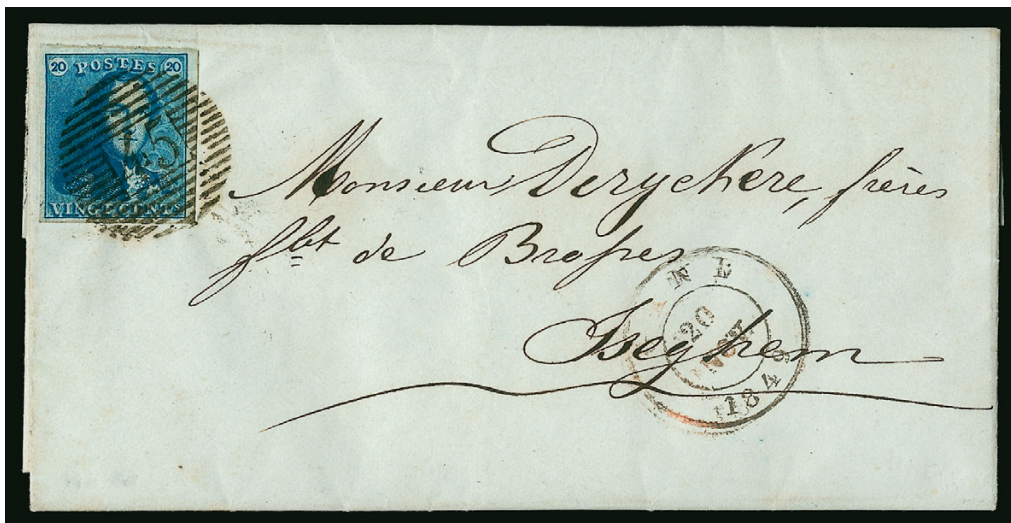 20 POSTES 20
VINGT CENTS
Monsieur Deryckere, frères
fbt de Brosses
Iseghem
20
NOV.
184